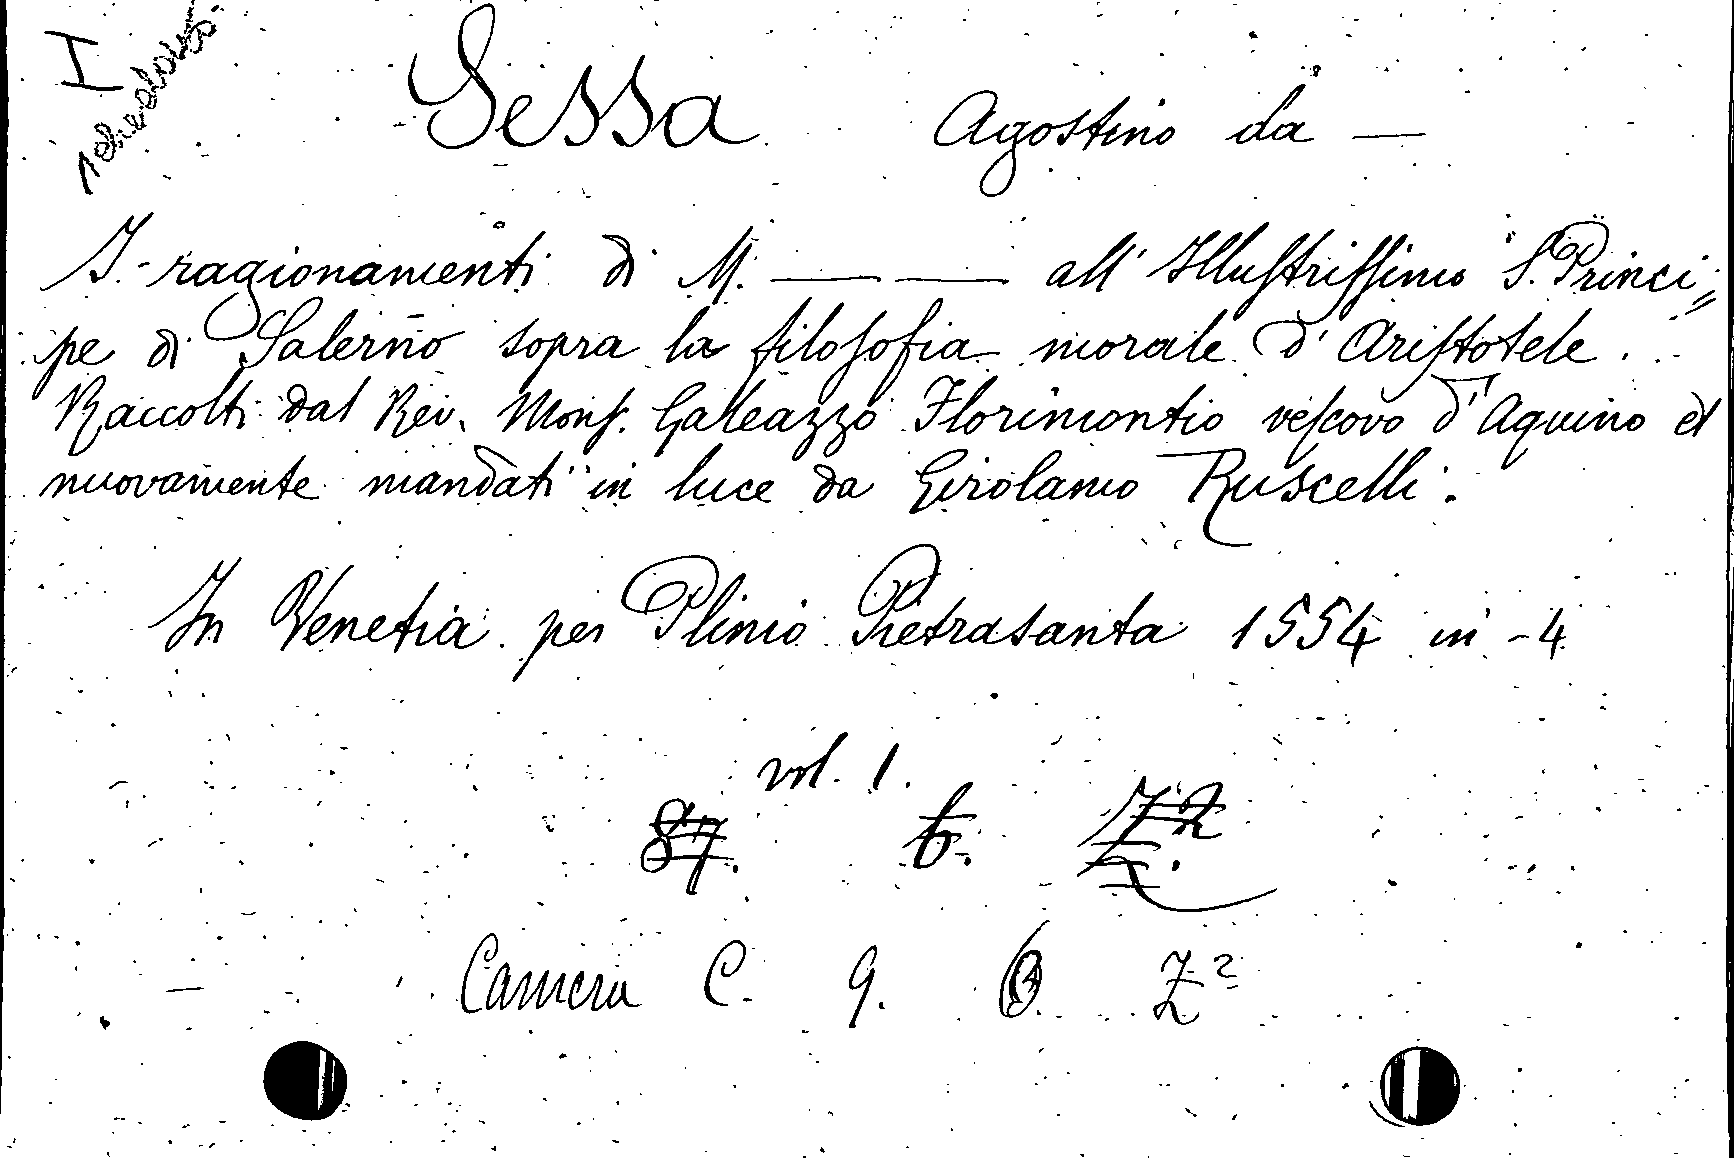 I schedato
Sessa Agostino da —
I ragionamenti di M. — — all' Illuſtriſſimo S. Princi=
pe di Salerno sopra la filoſofia morale d' Ariſtotele.
Raccolti dal Rev. Monſ. Galeazzo Florimontio veſcovo d' Aquino et
nuovamente mandati in luce da Girolamo Ruscelli.
In Venetia per Plinio Pietrasanta 1554 in-4
vol. 1.
87. b. Z²
Camera C. 9. Z²